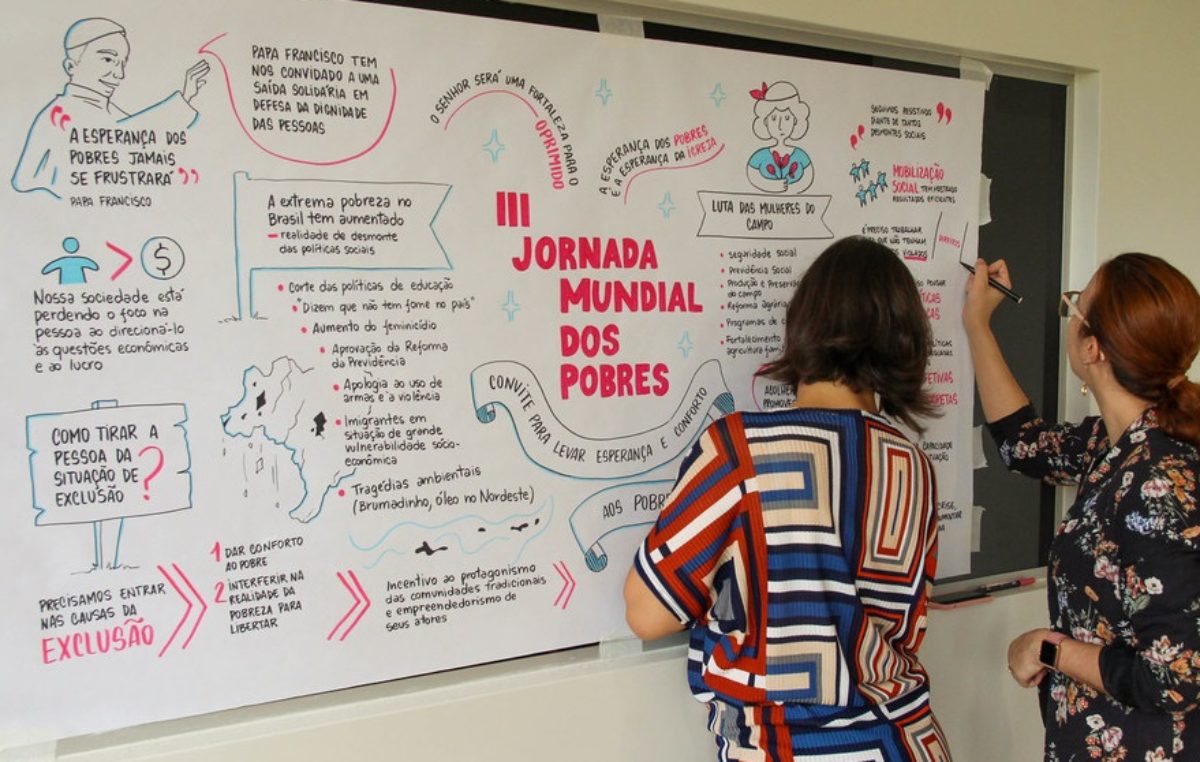 "A ESPERANÇA DOS
POBRES JAMAIS
SE FRUSTRARÁ"
PAPA FRANCISCO
PAPA FRANCISCO TEM
NOS CONVIDADO A UMA
SAÍDA SOLIDÁRIA EM
DEFESA DA DIGNIDADE
DAS PESSOAS
> $
Nossa sociedade está
perdendo o foco na
pessoa ao direcioná-lo
às questões econômicas
e ao lucro
COMO TIRAR A
PESSOA DA
SITUAÇÃO DE
EXCLUSÃO ?
PRECISAMOS ENTRAR
NAS CAUSAS DA
EXCLUSÃO
1 DAR CONFORTO
AO POBRE
2 INTERFERIR NA
REALIDADE DA
POBREZA PARA
LIBERTAR
Incentivo ao protagonismo
das comunidades tradicionais
e empreendedorismo de
seus atores
A extrema pobreza no
Brasil tem aumentado
- realidade de desmonte
das políticas sociais
• Corte das políticas de educação
• "Dizem que não tem fome no país"
• Aumento do feminicídio
• Aprovação da Reforma
da Previdência
• Apologia ao uso de
armas e a violência
• Imigrantes em
situação de grande
vulnerabilidade sócio-
econômica
• Tragédias ambientais
(Brumadinho, óleo no Nordeste)
O SENHOR SERÁ UMA FORTALEZA PARA O
OPRIMIDO
A ESPERANÇA DOS POBRES
É A ESPERANÇA DA IGREJA
III
JORNADA
MUNDIAL
DOS
POBRES
CONVITE PARA LEVAR ESPERANÇA E CONFORTO
AOS
LUTA DAS MULHERES DO
CAMPO
• Seguridade social
• Previdência Social
• Produção e
do campo
• Reforma
• Programas de
• Fortalecimento
agricultura
"SEGUIMOS RESISTINDO
DIANTE DE TANTOS
DESMONTES SOCIAIS"
MOBILIZAÇÃO
SOCIAL TEM MOSTRADO
RESULTADOS EFICIENTES
É PRECISO TRABALHAR
QUE NÃO TENHAM
VIOLADOS
DIREITOS